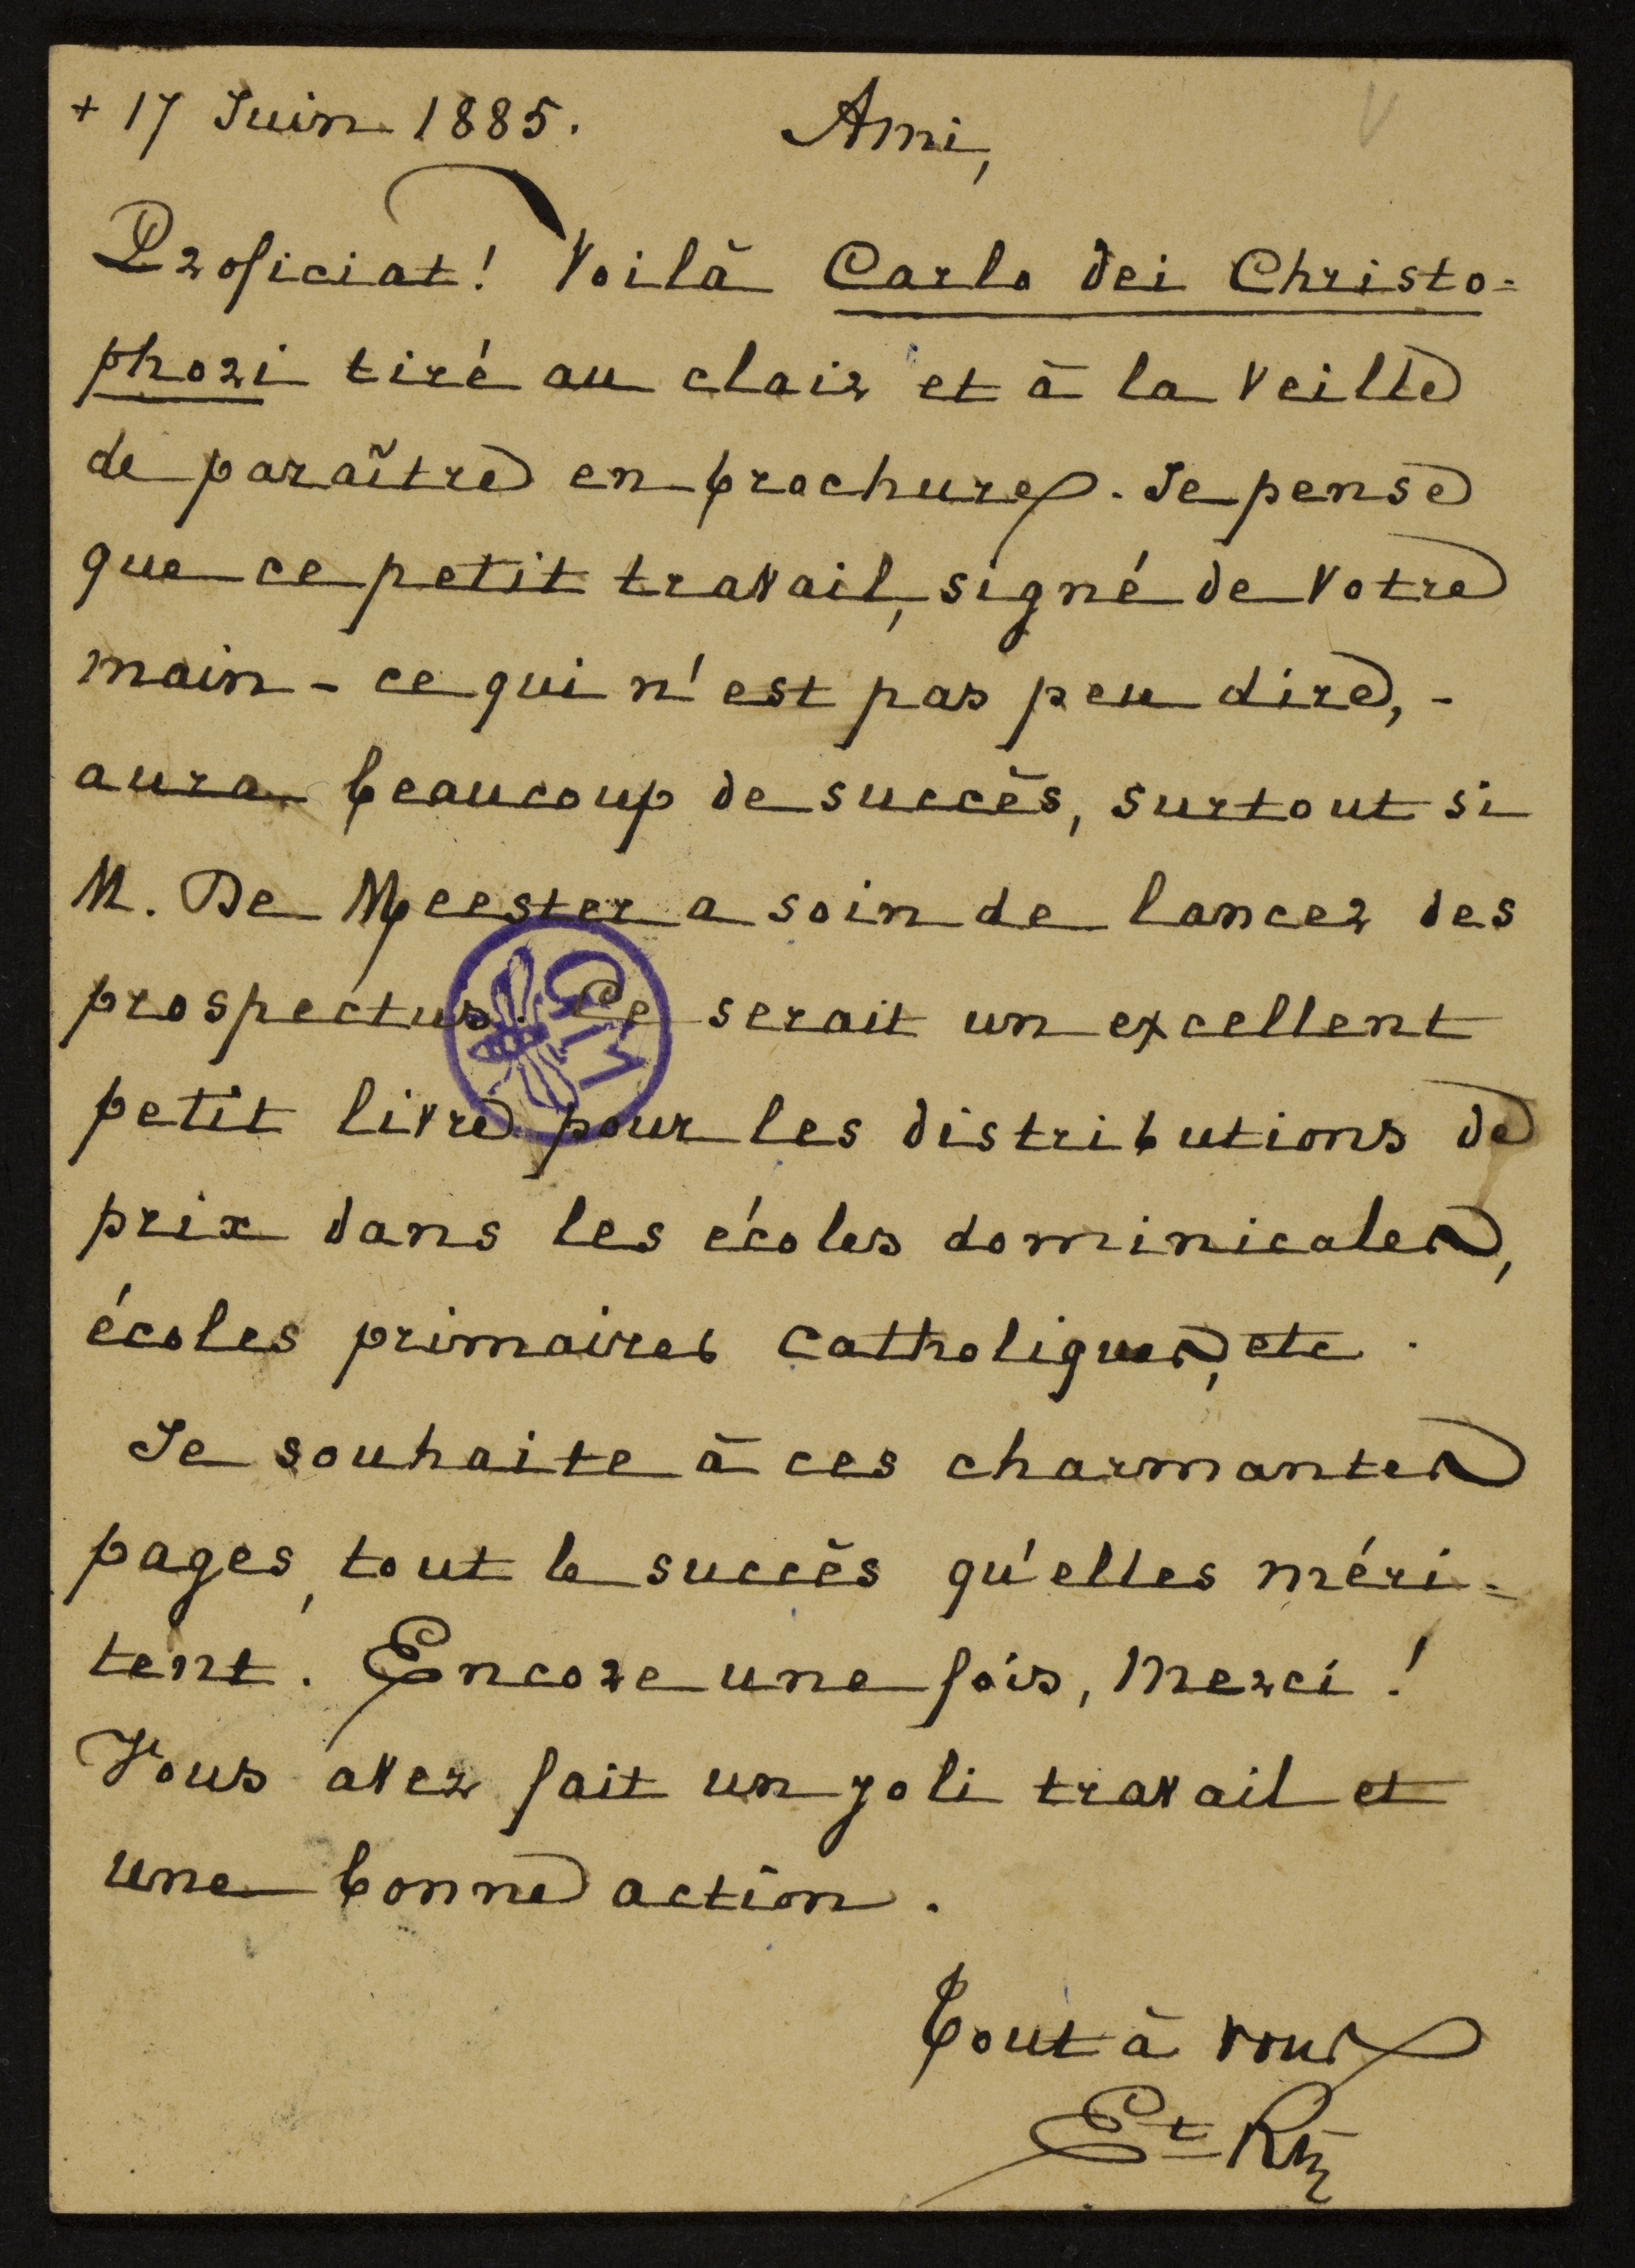 + 17 Juin 1885. Ami,
Proficiat! Voilà Carlo dei Christo=
phori tiré au clair et à la veille
de paraître en brochure. Je pense
que ce petit travail, signé de votre
main - ce qui n'est pas peu dire, -
aura beaucoup de succès, surtout si
M. De Meester a soin de lancer des
prospectus. Ce serait un excellent
petit livre pour les distributions de
prix dans les écoles dominicales,
écoles primaires catholiques, etc.
Je souhaite à ces charmantes
pages, tout le succès qu'elles méri=
tent. Encore une fois, Merci!
Vous avez fait un joli travail et
une bonne action.
Tout à vous